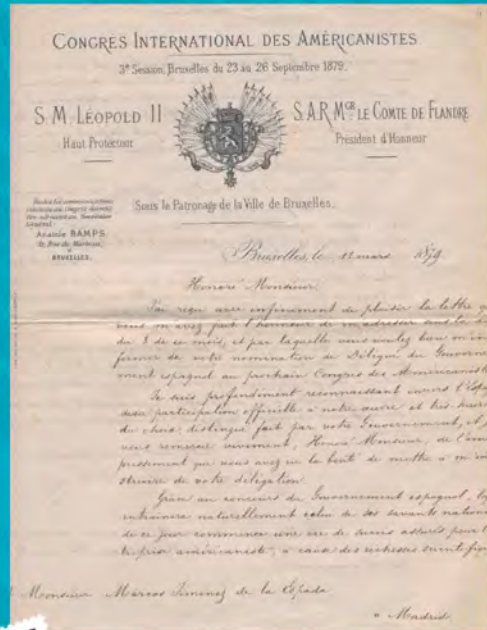 CONGRES INTERNATIONAL DES AMÉRICANISTES
3e Session, Bruxelles du 23 au 26 Septembre 1879.
S. M. LÉOPOLD II
Haut Protecteur
S.A.R. MGR LE COMTE DE FLANDRE
Président d'Honneur
Sous le Patronage de la Ville de Bruxelles.
Toutes les communications
relatives au Congrès doivent
être adressées au Secrétaire
Général
Anatole BAMPS,
Rue du Marteau,
à
BRUXELLES.
Bruxelles, le 12 mars 1879.
Honoré Monsieur,
J'ai reçu avec infiniment de plaisir la lettre
vous m'avez fait l'honneur de m'adresser sous la
du 8 de ce mois, et par laquelle vous voulez bien m'in
former de votre nomination de Délégué du Gouverne
ment espagnol au prochain Congrès des Américanist
Je suis profondément reconnaissant envers l'Espa
de sa participation officielle à notre œuvre et très
du choix distingué fait par votre Gouvernement, et
vous remercie vivement, Honoré Monsieur, de l'em
pressement que vous avez eu la bonté de mettre à m'in
struire de votre délégation.
Grâce au concours du Gouvernement espagnol,
entrainera naturellement celui de ses savants nation
de ce jour commence une ère de succès assurés pour l'
treprise américaniste, à cause des richesses scientifiq
Monsieur Marcos Jimenez de la Espada
à Madrid